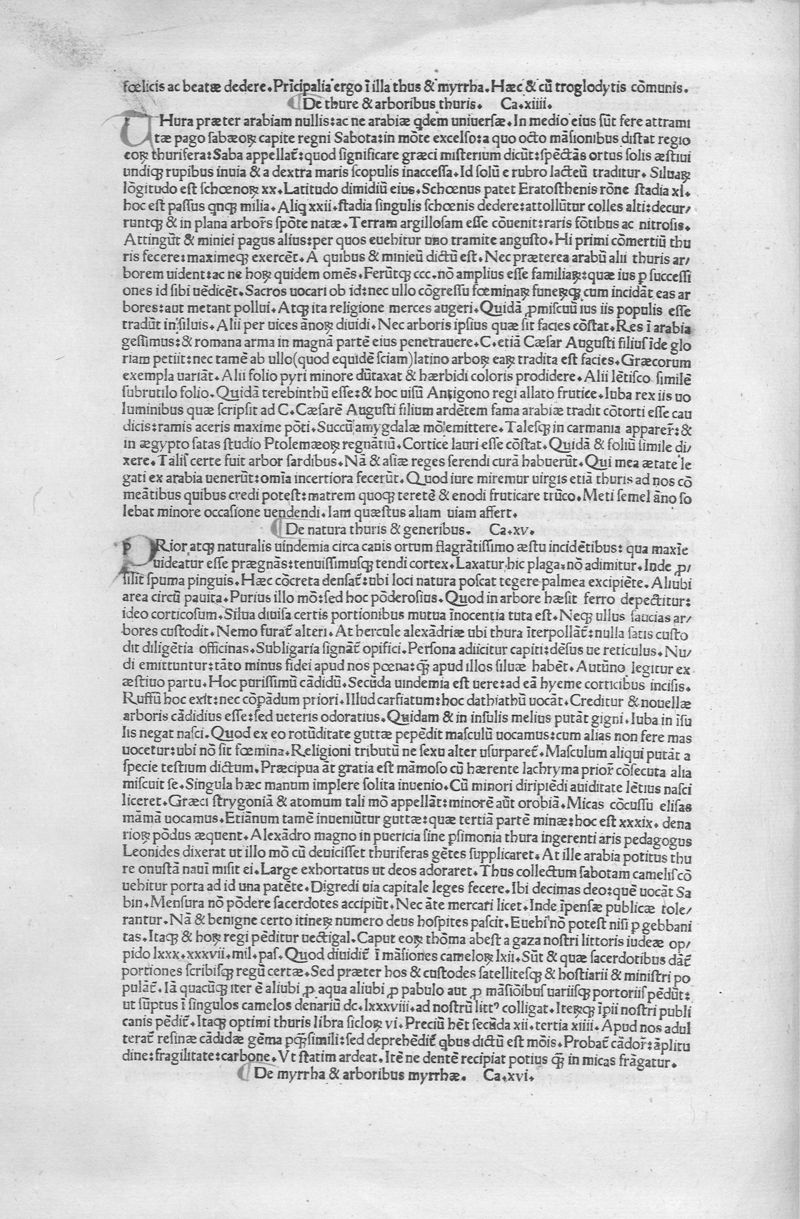 fœlicis ac beatæ dedere. Prīcipalia ergo ī illa thus & myrrha. Hæc & cū troglodytis cōmunis.
De thure & arboribus thuris. Ca. xiiii.
THura præter arabiam nullis: ac ne arabiæ qdem uniuersæ. In medio eius sūt fere attrami
tæ pago sabæoꝝ capite regni Sabota: in mōte excelso: a quo octo māsionibus distat regio
eoꝝ thurifera: Saba appellat̄: quod significare græci misterium dicūt: spēctās ortus solis æstiui
undiqꝫ rupibus inuia & a dextra maris scopulis inaccessa. Id solū e rubro lacteū traditur. Siluaꝝ
lōgitudo est schœnoꝝ xx. Latitudo dimidiū eius. Schœnus patet Eratosthenis rōne stadia xl.
hoc est passus qnqꝫ milia. Aliq xxii. stadia singulis schœnis dedere: attollūtur colles alti: decur/
runtqꝫ & in plana arbor̄s spōte natæ. Terram argillosam esse cōuenit: raris fōtibus ac nitrosis.
Attingūt & miniei pagus alius: per quos euehitur uno tramite angusto. Hi primi cōmertiū thu
ris fecere: maximeqꝫ exercēt. A quibus & minieū dictū est. Nec præterea arabū alii thuris ar/
borem uident: ac ne hoꝝ quidem omēs. Ferūtqꝫ ccc. nō amplius esse familiaꝝ: quæ ius p successi
ones id sibi uēdicēt. Sacros uocari ob id: nec ullo cōgressu fœminaꝝ funeꝝqꝫ cum incidāt eas ar
bores: aut metant pollui. Atqꝫ ita religione merces augeri. Quidā ꝓmiscuū ius iis populis esse
tradūt in siluis. Alii per uices ānoꝝ diuidi. Nec arboris ipsius quæ sit facies cōstat. Res ī arabia
gessimus: & romana arma in magnā partē eius penetrauere. C. etiā Cæsar Augusti filius īde glo
riam petiit: nec tamē ab ullo (quod equidē sciam) latino arboꝝ eaꝝ tradita est facies. Græcorum
exempla uariāt. Alii folio pyri minore dūtaxat & hærbidi coloris prodidere. Alii lētisco similē
subrutilo folio. Quidā terebinthū esse: & hoc uisū Antigono regi allato frutice. Iuba rex iis uo
luminibus quæ scripsit ad C. Cæsarē Augusti filium ardētem fama arabiæ tradit cōtorti esse cau
dicis: ramis aceris maxime pōti. Succū amygdalæ mō emittere. Talesqꝫ in carmania apparer̄: &
in ægypto satas studio Ptolemæoꝝ regnātiū. Cortice lauri esse cōstat. Quidā & foliū simile di/
xere. Talis certe fuit arbor sardibus. Nā & asiæ reges serendi curā habuerūt. Qui mea ætate le
gati ex arabia uenerūt: omīa incertiora fecerūt. Quod iure miremur uirgis etiā thuris ad nos cō
meātibus quibus credi potest: matrem quoqꝫ teretē & enodi fruticare trūco. Meti semel āno so
lebat minore occasione uendendi. Iam quæstus aliam uiam affert.
De natura thuris & generibus. Ca. xv.
PRior atqꝫ naturalis uindemia circa canis ortum flagrātissimo æstu incidētibus: qua maxīe
uideatur esse prægnās: tenuissimusqꝫ tendi cortex. Laxatur hic plaga. nō adimitur. Inde ꝓ/
silit spuma pinguis. Hæc cōcreta densat̄: ubi loci natura poscat tegere palmea excipiēte. Aliubi
area circū pauita. Purius illo mō: sed hoc pōderosius. Quod in arbore hæsit ferro depectitur:
ideo corticosum. Silua diuisa certis portionibus mutua īnocentia tuta est. Neqꝫ ullus saucias ar/
bores custodit. Nemo furat̄ alteri. At hercule alexādriæ ubi thura īterpollāt̄: nulla satis custo
dit diligētia officinas. Subligaria signāt̄ opifici. Persona adiicitur capiti: dēsus ue reticulus. Nu/
di emittuntur: tāto minus fidei apud nos pœna: qꝫ apud illos siluæ habēt. Autūno legitur ex
æstiuo partu. Hoc purissimū cādidū. Secūda uindemia est uere: ad eā hyeme corticibus incisis.
Ruffū hoc exit: nec cōpādum priori. Illud carfiatum: hoc dathiathū uocāt. Creditur & nouellæ
arboris cādidius esse: sed ueteris odoratius. Quidam & in insulis melius putāt gigni. Iuba in īsu
lis negat nasci. Quod ex eo rotūditate guttæ pepēdit masculū uocamus: cum alias non fere mas
uocetur: ubi nō sit fœmina. Religioni tributū ne sexu alter usurparet̄. Masculum aliqui putāt a
specie testium dictum. Præcipua āt gratia est māmoso cū hærente lachryma prior̄ cōsecuta alia
miscuit se. Singula hæc manum implere solita inuenio. Cū minori diripiēdi auiditate lētius nasci
liceret. Græci strygoniā & atomum tali mō appellāt: minorē aūt orobiā. Micas cōcussu elisas
māmā uocamus. Etiānum tamē inueniūtur guttæ: quæ tertiā partē minæ: hoc est xxxix. dena
rioꝝ pōdus æquent. Alexādro magno in puericia sine psimonia thura ingerenti aris pedagogus
Leonides dixerat ut illo mō cū deuicisset thuriferas gētes supplicaret. At ille arabia potitus thu
re onustā nauī misit ei. Large exhortatus ut deos adoraret. Thus collectum sabotam camelis cō
uehitur porta ad id una patēte. Digredi uia capitale leges fecere. Ibi decimas deo: quē uocāt Sa
bin. Mensura nō pōdere sacerdotes accipiūt. Nec āte mercari licet. Inde īpensæ publicæ tole/
rantur. Nā & benigne certo itineꝝ numero deus hospites pascit. Euehi nō potest nisi p gebbani
tas. Itaqꝫ & hoꝝ regi pēditur uectigal. Caput eoꝝ thōma abest a gaza nostri littoris iudeæ op/
pido lxxx. xxxvii. mil. pas. Quod diuidit̄ ī māsiones cameloꝝ lxii. Sūt & quæ sacerdotibus dāt̄
portiones scribisqꝫ regū certæ. Sed præter hos & custodes satellitesqꝫ & hostiarii & ministri po
pulāt̄. Iā quacūqꝫ iter ē aliubi ꝓ aqua aliubi ꝓ pabulo aut ꝓ māsiōibus uariisqꝫ portoriis pēdūt:
ut sūptus ī singulos camelos denariū dc. lxxxviii. ad nostrū litt⁹ colligat. Iteꝝqꝫ īpii nostri publi
canis pēdit̄. Itaqꝫ optimi thuris libra sicloꝝ vi. Preciū hēt secūda xii. tertia xiiii. Apud nos adul
terat̄ resinæ cādidæ gēma pqꝫ simili: sed deprehēdit̄ qbus dictū est mōis. Probat̄ cādor̄: āplitu
dine: fragilitate: carbone. Vt statim ardeat. Itē ne dentē recipiat potius qꝫ in micas frāgatur.
De myrrha & arboribus myrrhæ. Ca. xvi.